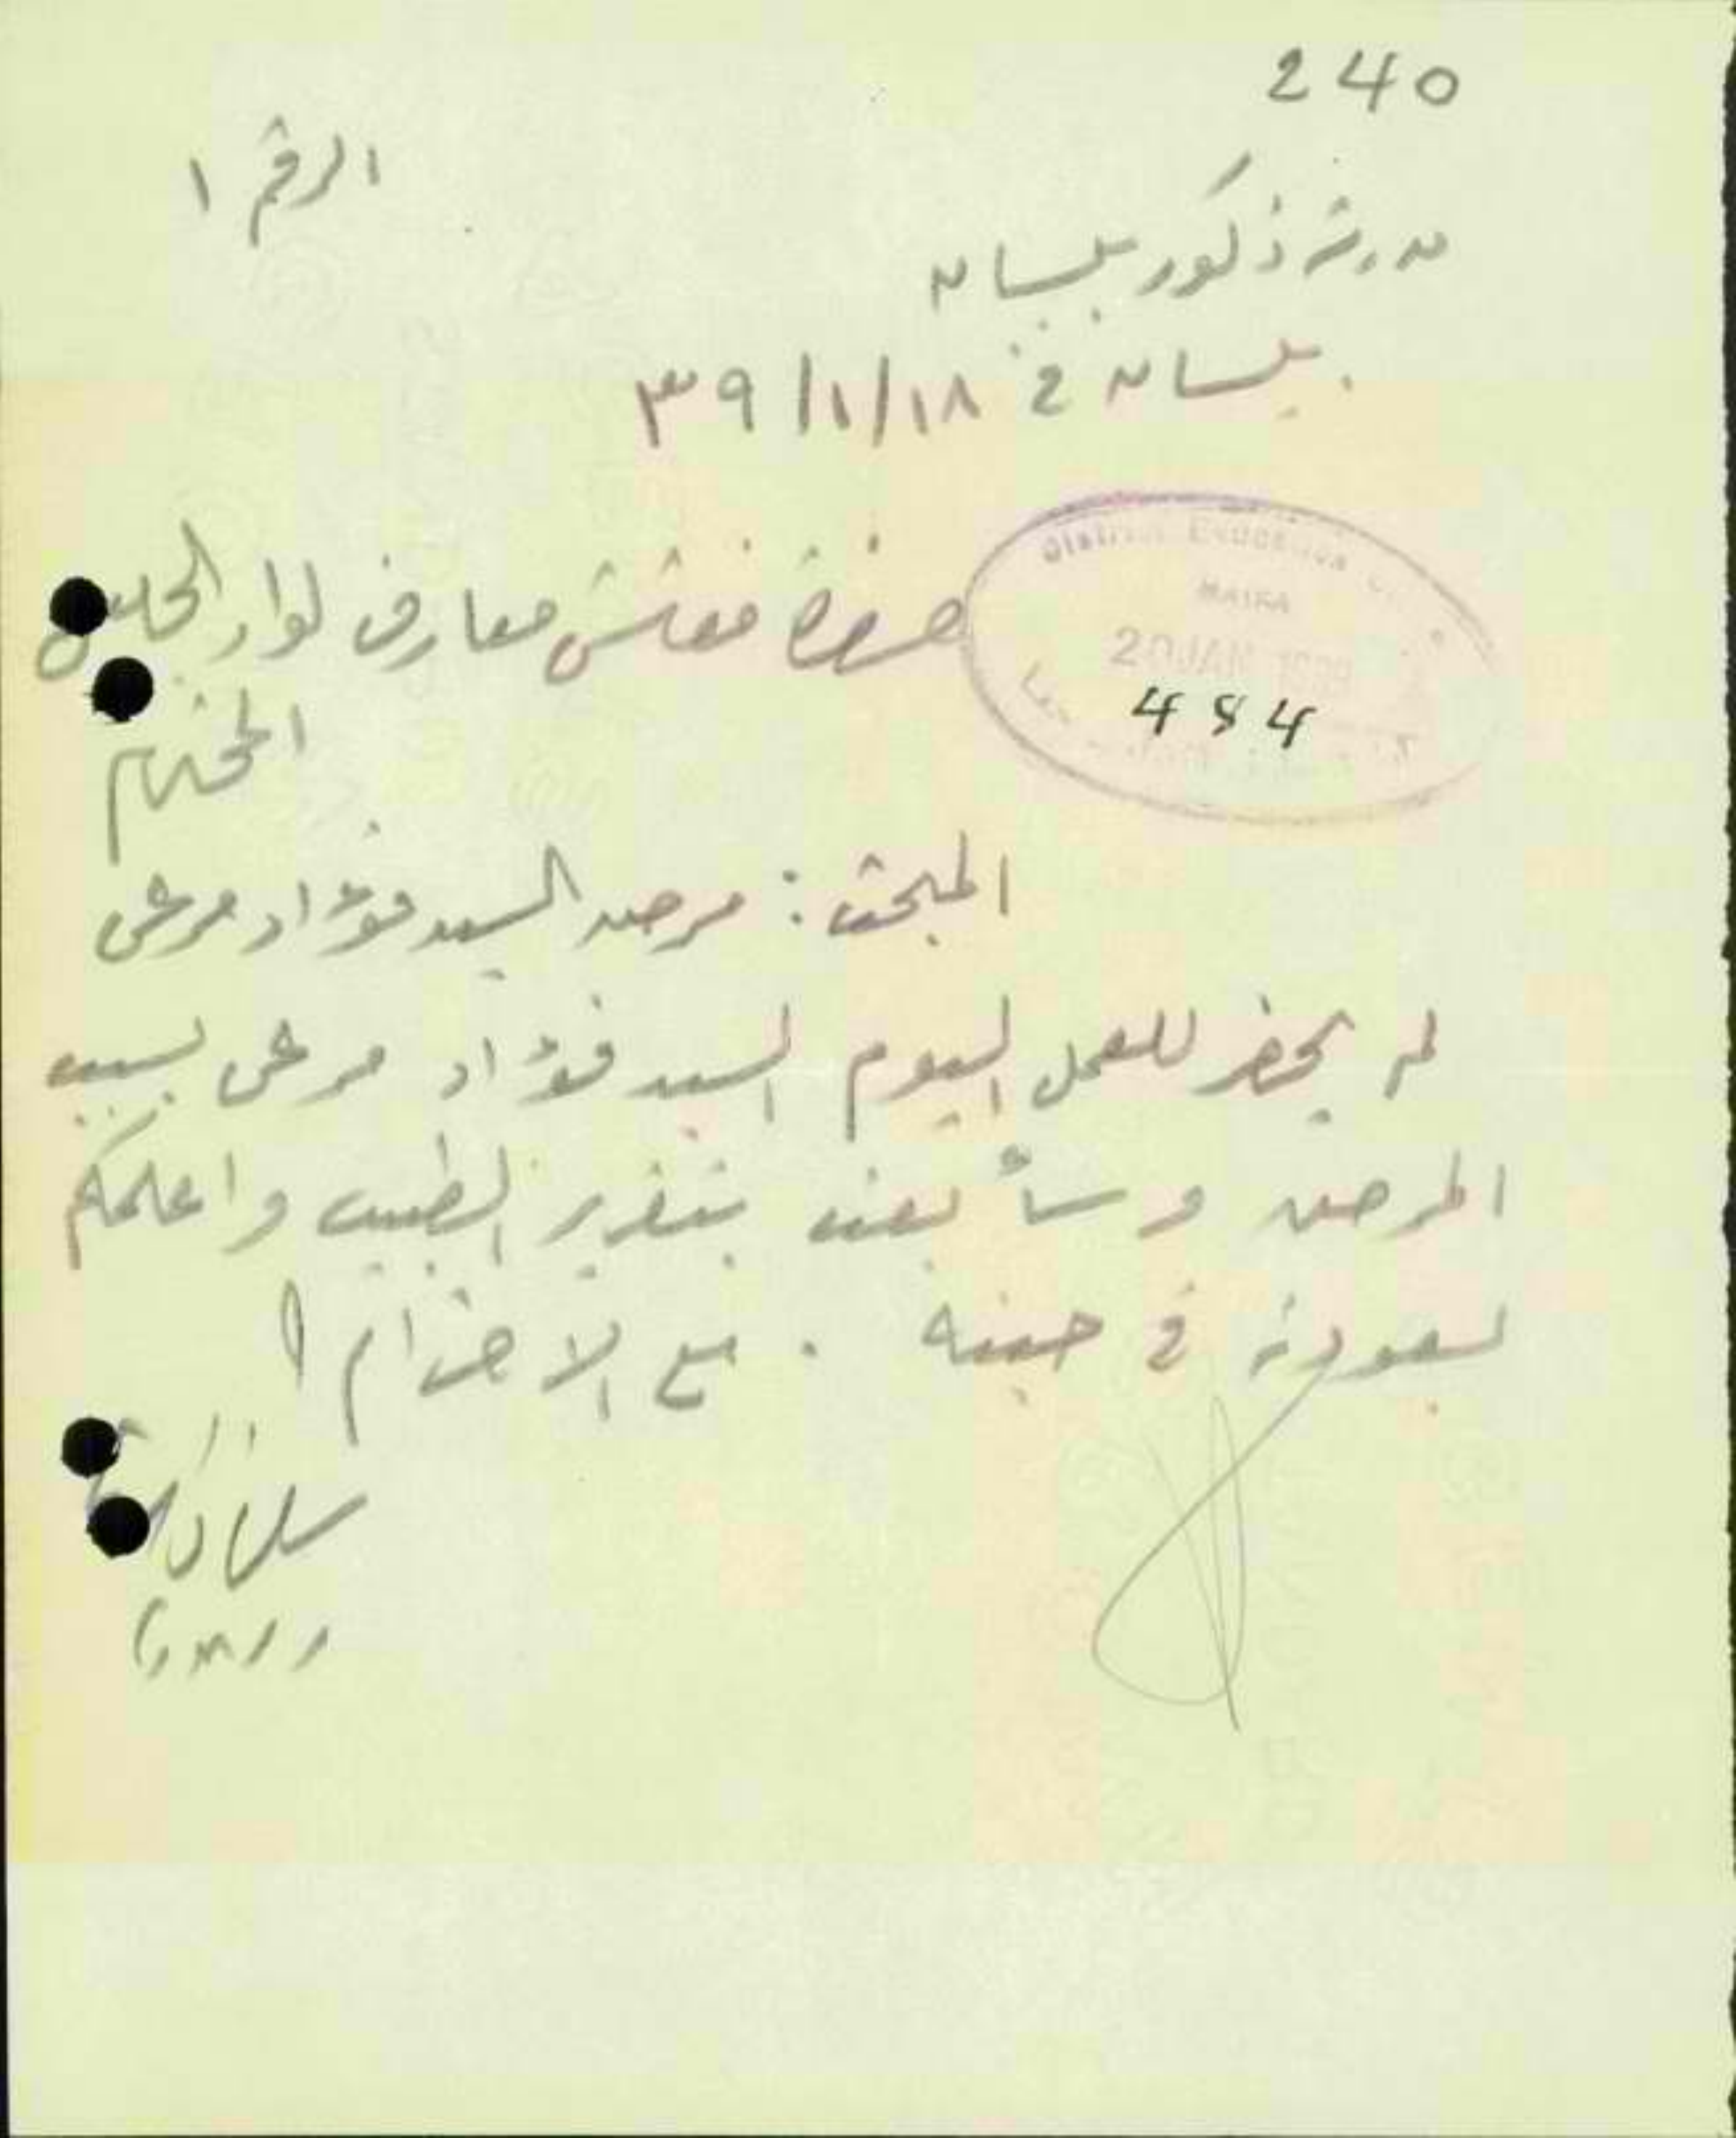 240
الرقم ١
مدرسة ذكور بيسان
بيسان في ١٨/١/٣٩
District Education
HAIFA
20 JAN 1939
484
حضرة مفتش معارف لواء الجليل
المحترم
المبحث: مرض السيد فؤاد مرعي
لم يحضر للعمل اليوم السيد فؤاد مرعي بسبب
المرض وسأبعث بتقرير الطبيب واعلمكم
بعودته في حينه . مع الاحترام